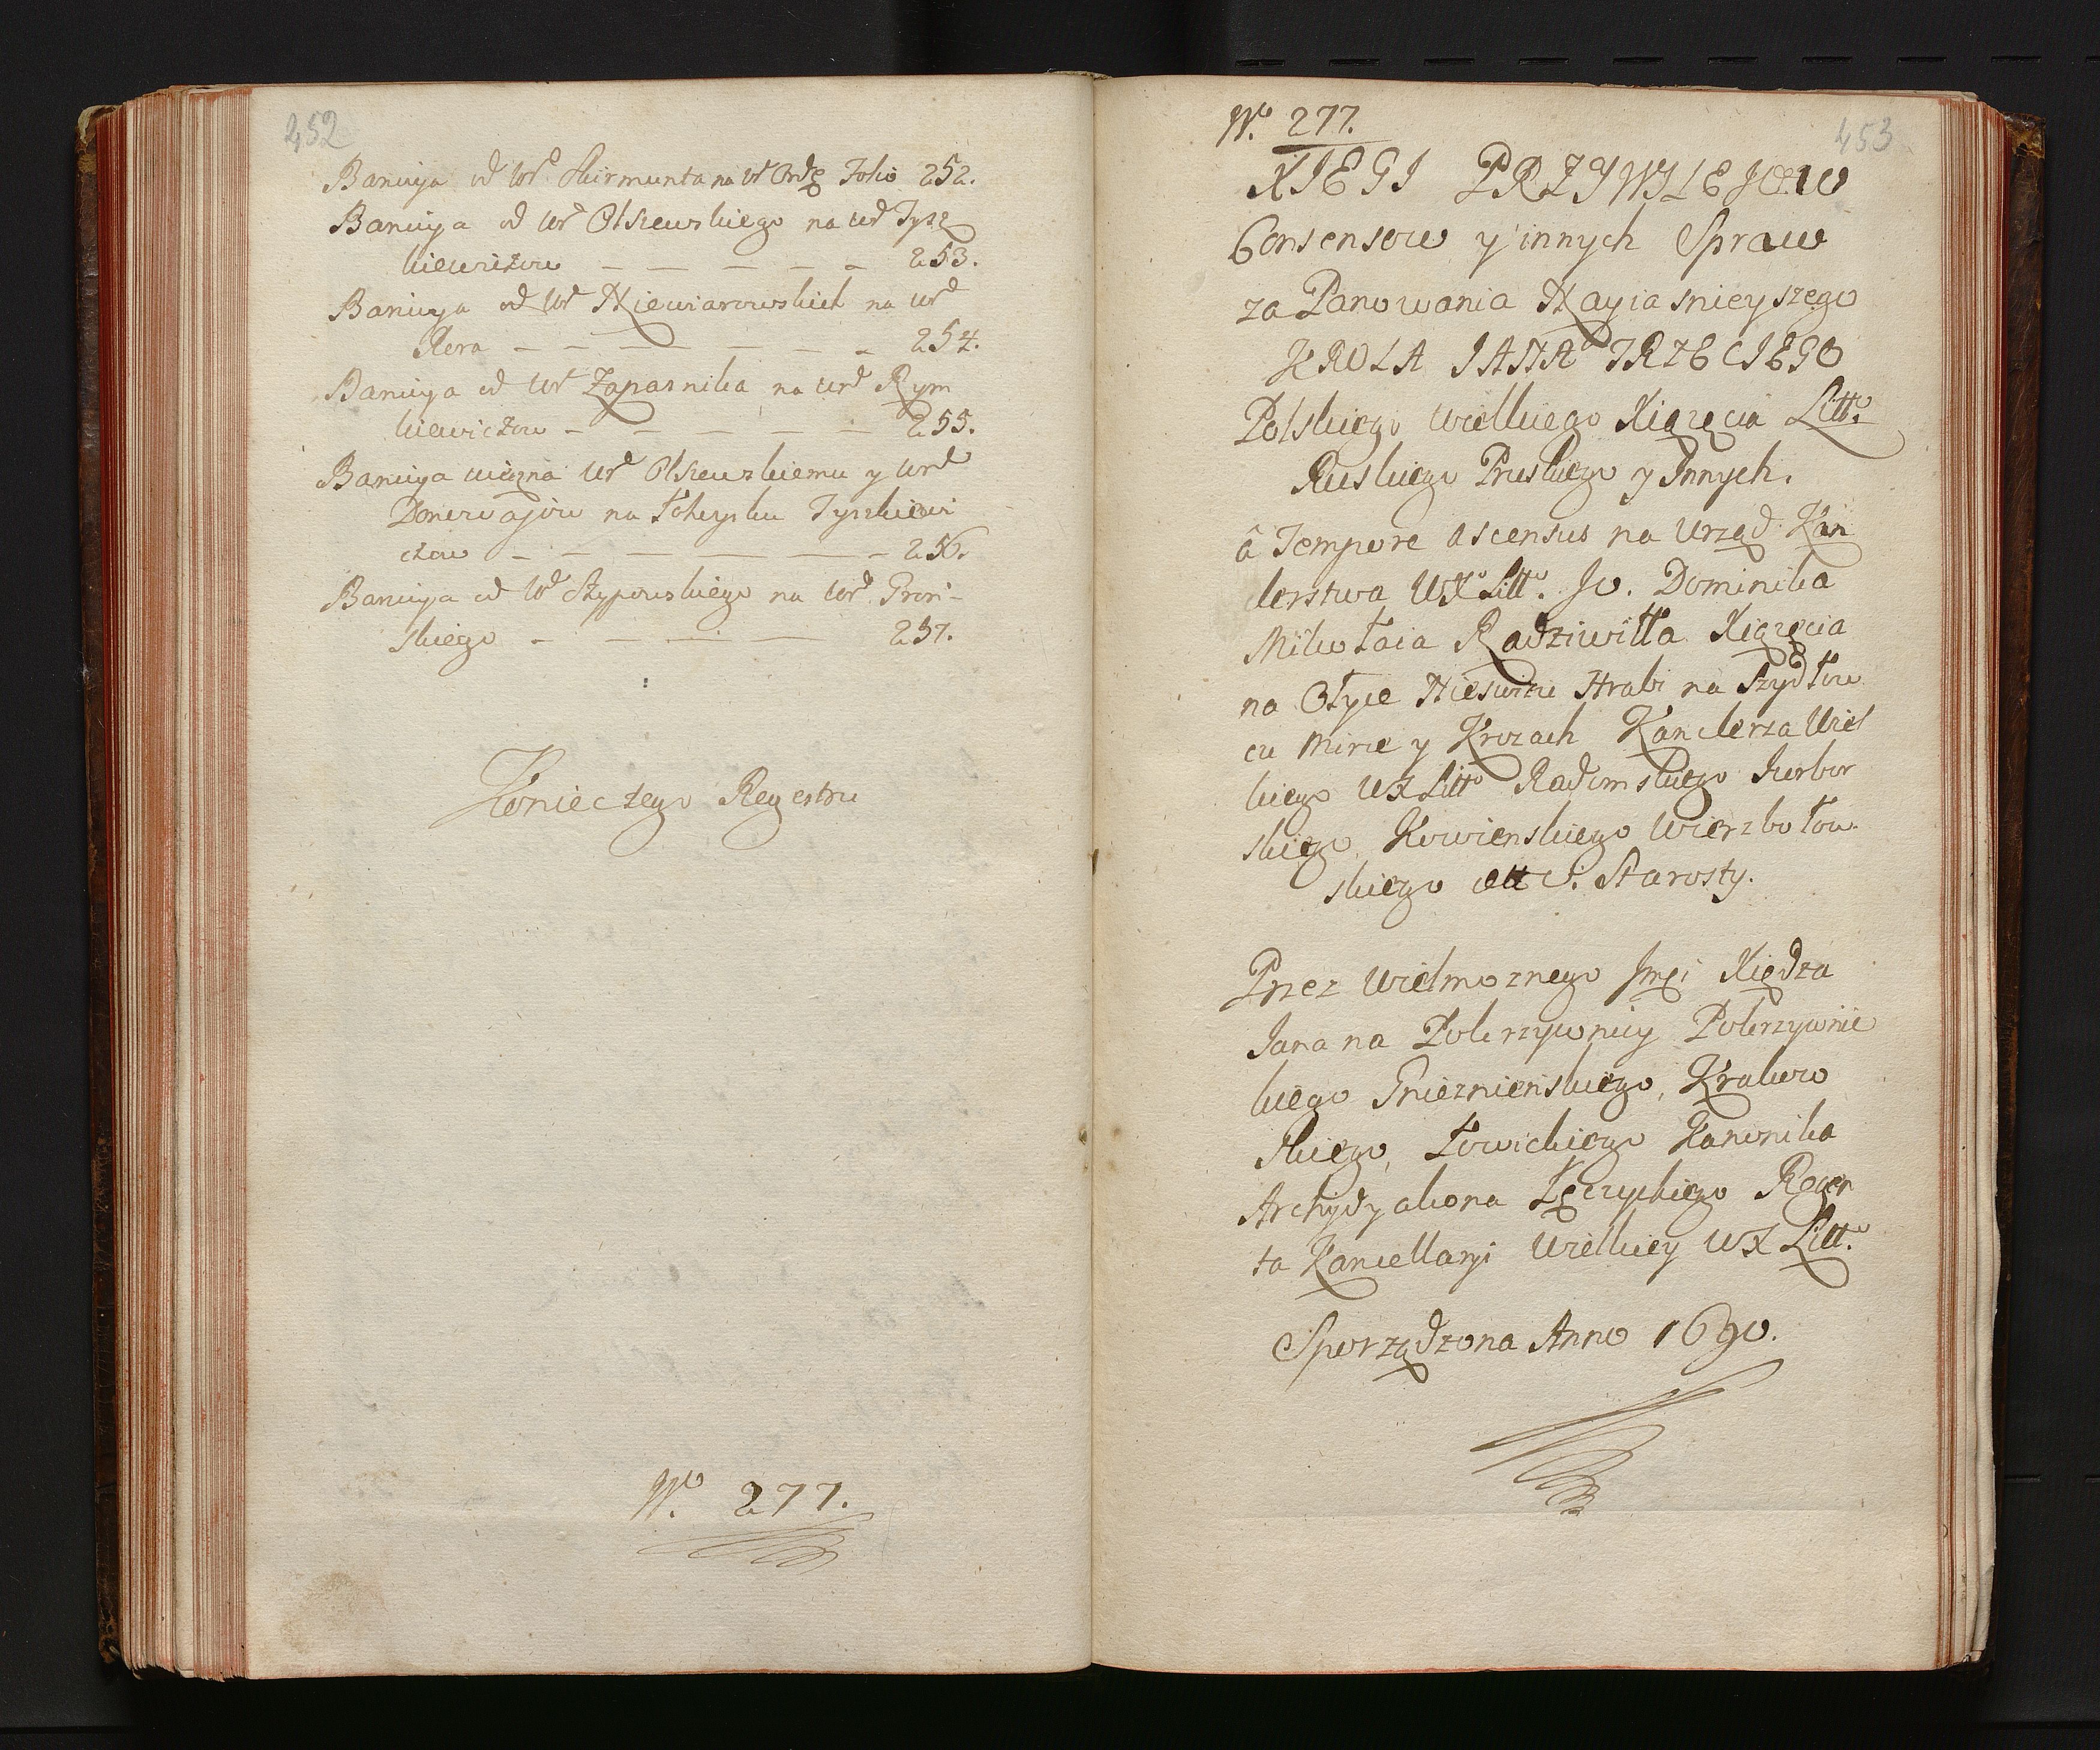 452
Banicya od Ur.d Skirmunta na Ur Ordę Folio 252.
Banicya od Ur.d Olszewskiego na Ur.d Tysz
kiewiczow — — — — — 253.
Banicya od Ur.d Niewiarowskich na Ur.d
Kera — — — — — — 254.
Banicya od Ur.d Zapasnika na Ur.d Rym
kiewiczow — — — — — 255.
Banicya wieczna Ur.d Olszewskiemu y Ur.d
na Łohoysku Tyszkiewi
czow — — — — — 256.
Banicya od Ur.d Szypowskiego na Ur.d
skiego — — — — 257.
Koniec tego Regestru
No. 277.
No. 277.
453
XIEGI PRZYWILEJOW
Consensow y innych Spraw
za Panowania Nayiasnieyszego
KROLA IANA TRZECIEGO
Polskiego Wielkiego Xiązęcia Litt.o
Ruskiego Pruskiego y Innych.
â Tempore ascensus na Urząd Kan
clerstwa WX Litt.o Jo. Dominika
Mikołaia Radziwiłła Xiązęcia
na Ołyce Nieswizu Hrabi na Szydłow
cu Mirze y Krozach Kanclerza Wiel
kiego WX Litto Radomskiego Jurbor
skiego Kowienskiego Wierzbołow
skiego ettc. Starosty.
Przez Wielmoznego Jmci Xiędza
Jana na Pokrzywnicy Pokrzywnic
kiego Gnieznienskiego, Krakow
skiego, Łowickiego Kanonika
Archydyakona Łęczyckiego Regen
ta Kancellaryi Wielkiey WX Litt.o
Sporządzona Anno 1690.